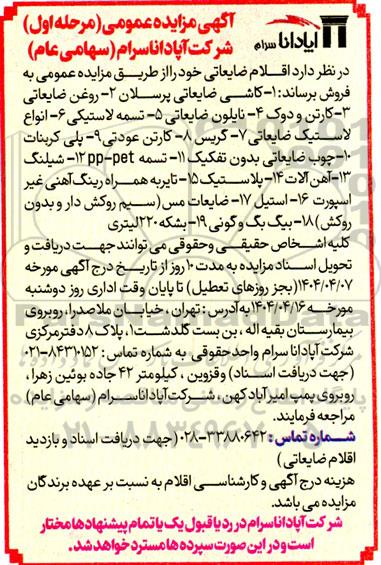 آپادانا سرام
آگهی مزایده عمومی (مرحله اول)
شرکت آپادانا سرام (سهامی عام)
در نظر دارد اقلام ضایعاتی خود را از طریق مزایده عمومی به
فروش برساند: ۱- کاشی ضایعاتی پرسلان ۲- روغن ضایعاتی
۳- کارتن و دوک ۴- نایلون ضایعاتی ۵- تسمه لاستیکی ۶- انواع
لاستیک ضایعاتی ۷- گریس ۸- کارتن عودتی ۹- پلی کربنات
۱۰- چوب ضایعاتی بدون تفکیک ۱۱- تسمه pp-pet ۱۲- شیلنگ
۱۳- آهن آلات ۱۴- پلاستیک ۱۵- تایر به همراه رینگ آهنی غیر
اسپورت ۱۶- استیل ۱۷- ضایعات مس (سیم روکش دار و بدون
روکش) ۱۸- بیگ بگ و گونی ۱۹- بشکه ۲۲۰ لیتری
کلیه اشخاص حقیقی و حقوقی می توانند جهت دریافت و
تحویل اسناد مزایده به مدت ۱۰ روز از تاریخ درج آگهی مورخه
۱۴۰۴/۰۴/۰۷ (بجز روزهای تعطیل) تا پایان وقت اداری روز دوشنبه
مورخه ۱۴۰۴/۰۴/۱۶ به آدرس: تهران، خیابان ملاصدرا، روبروی
بیمارستان بقیه اله، بن بست گلدشت ۱، پلاک ۸ دفتر مرکزی
شرکت آپادانا سرام واحد حقوقی به شماره تماس: ۸۴۳۱۰۱۵۲-۰۲۱
(جهت دریافت اسناد) و قزوین، کیلومتر ۴۲ جاده بوئین زهرا،
روبروی پمپ امیر آباد کهن، شرکت آپادانا سرام (سهامی عام)
مراجعه فرمایند.
شماره تماس: ۳۳۸۸۰۶۴۲-۰۲۸ (جهت دریافت اسناد و بازدید
اقلام ضایعاتی)
هزینه درج آگهی و کارشناسی اقلام به نسبت بر عهده برندگان
مزایده می باشد.
شرکت آپادانا سرام در رد یا قبول یک یا تمام پیشنهادها مختار
است و در این صورت سپرده ها مسترد خواهد شد.